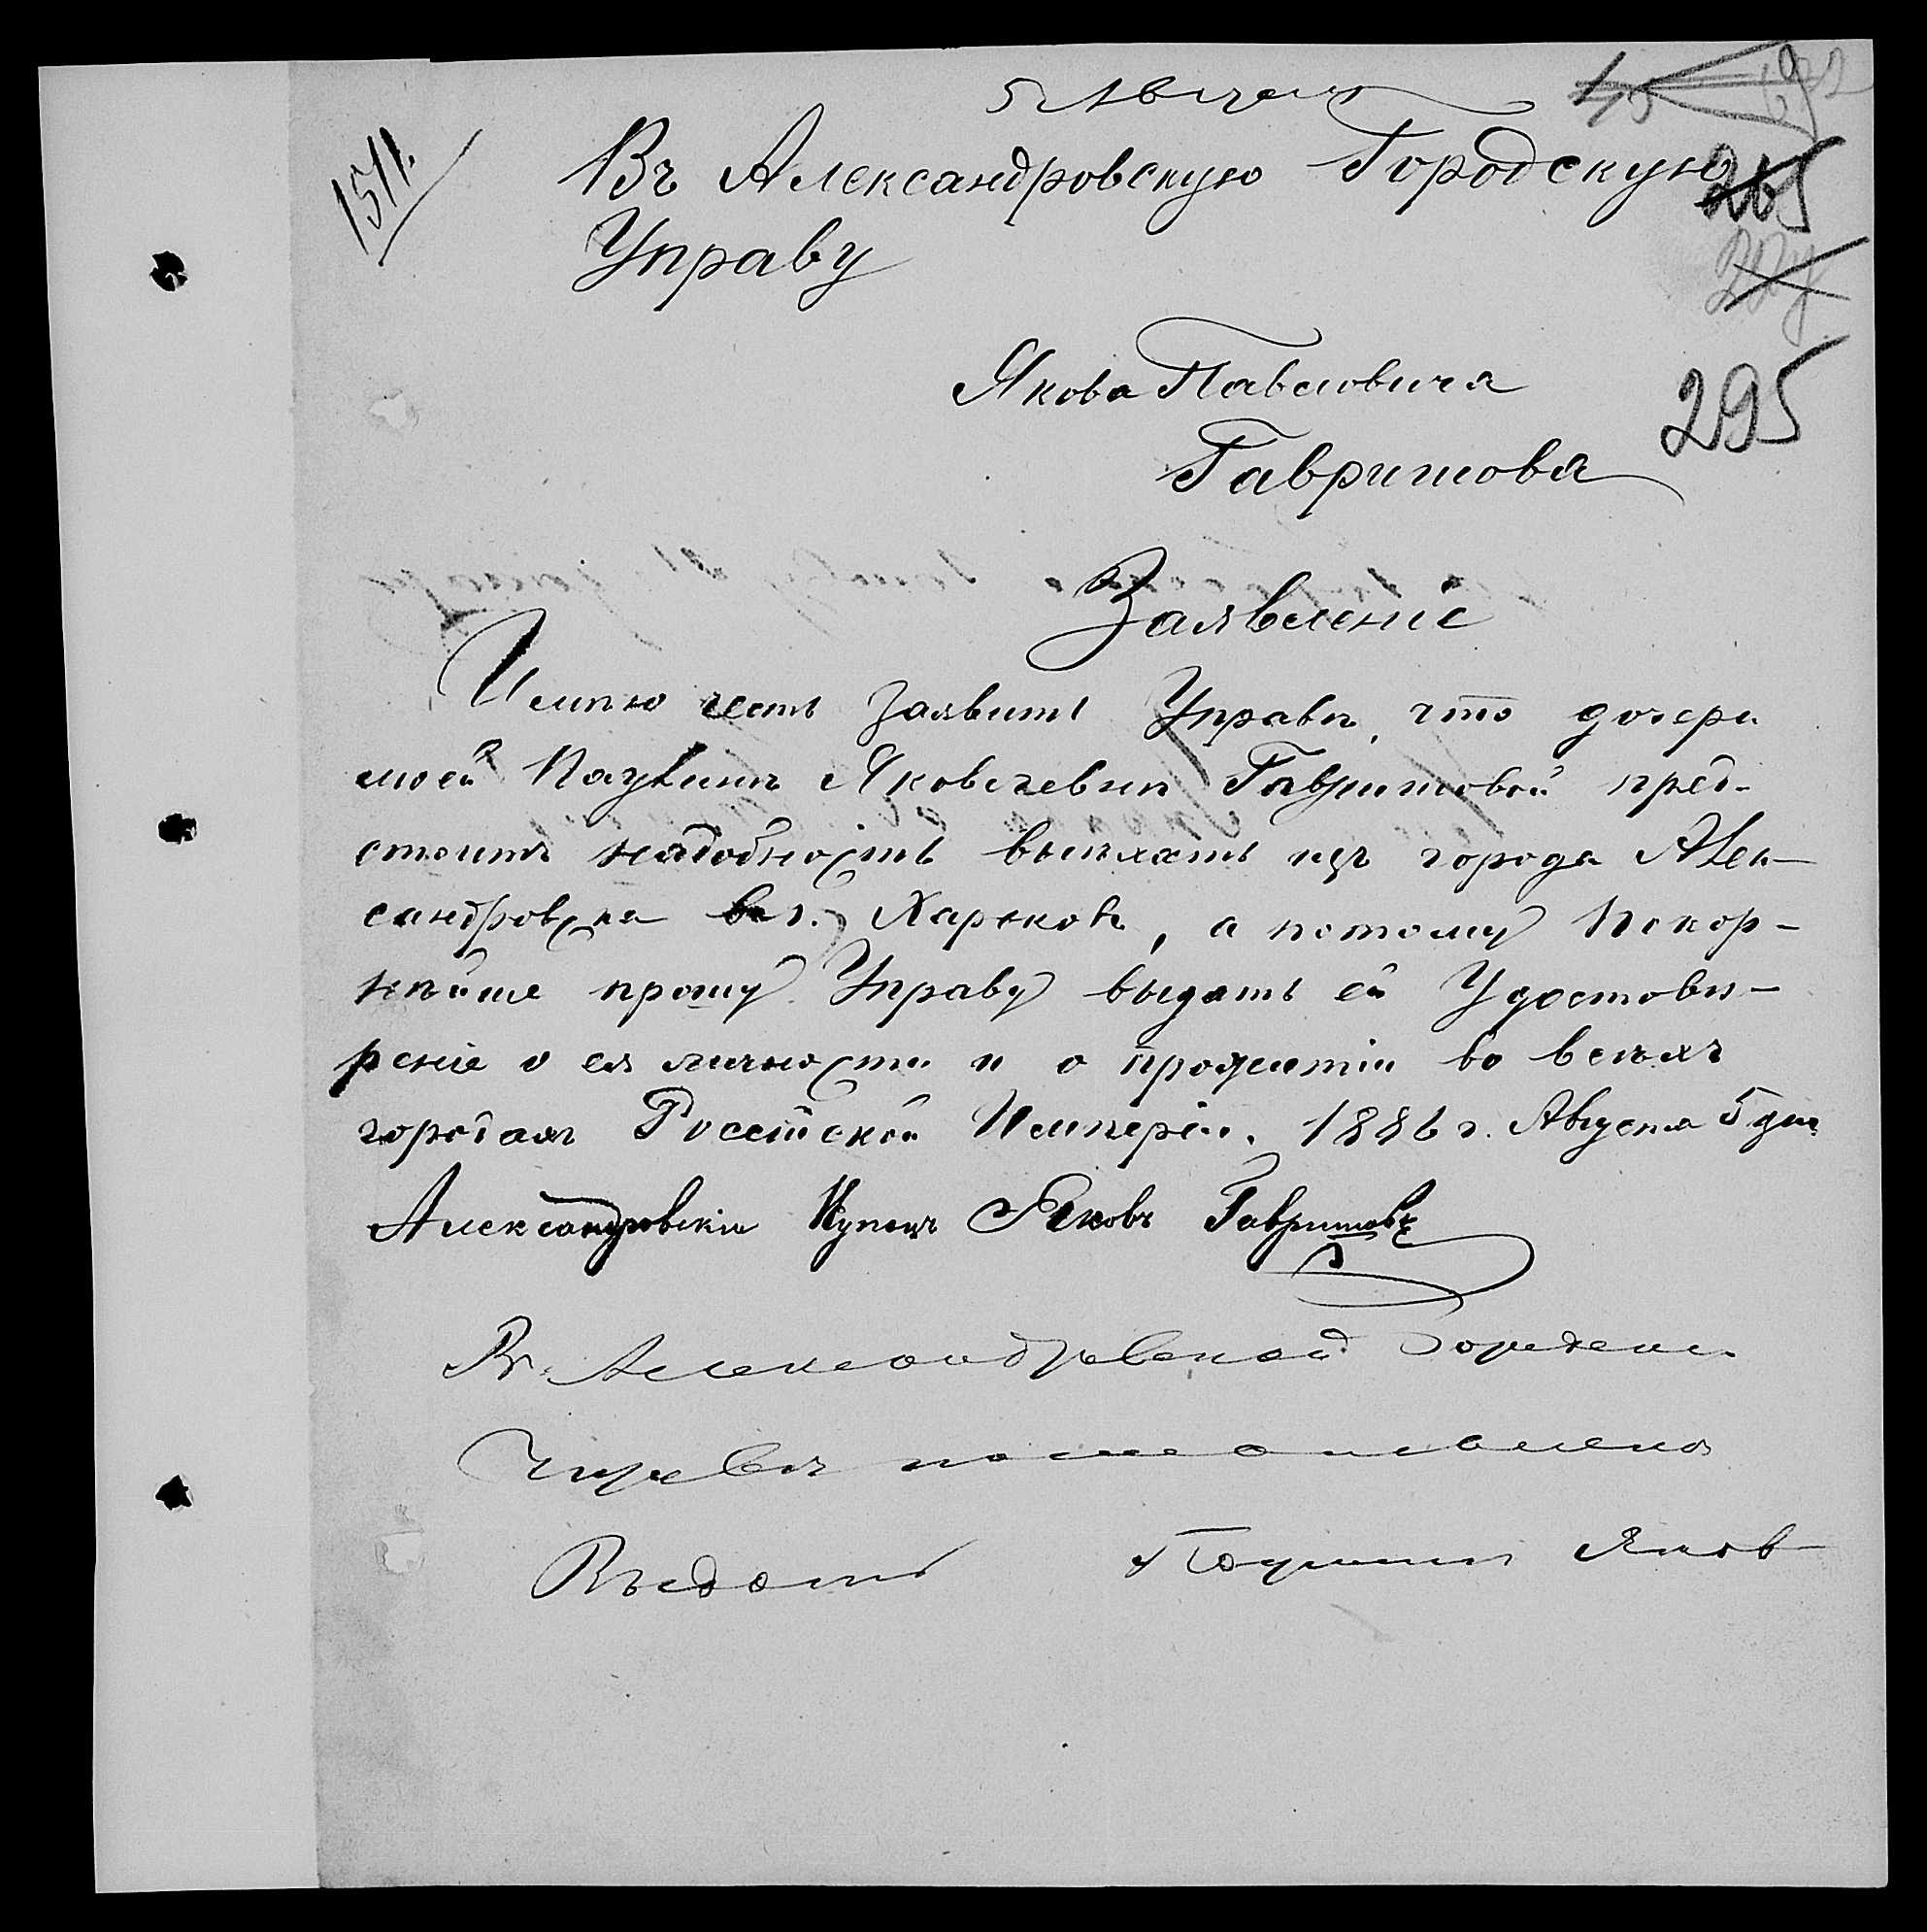 5 Августа
1511.
Въ Александровскую Городскую
Управу
265
295
Якова Павловича
Гавришова
Заявленіе
Имѣю честь заявить Управѣ, что дочери
моей Паулинѣ Яковлевнѣ Гавришовой пред-
стоитъ надобность выѣхать изъ города Алек-
сандровска в г. Харьковъ, а потому покор-
нѣйше прошу Управу выдать ей Удостовѣ-
реніе о ея личности и о прожитіи во всѣхъ
городахъ Россійской Имперіи. 1886 г. Августа 5 дня
Александровскій Купецъ Яковъ Гавришовъ
Въ Александровской Городской
Управѣ постановлено
Выдать Паулинѣ Яков